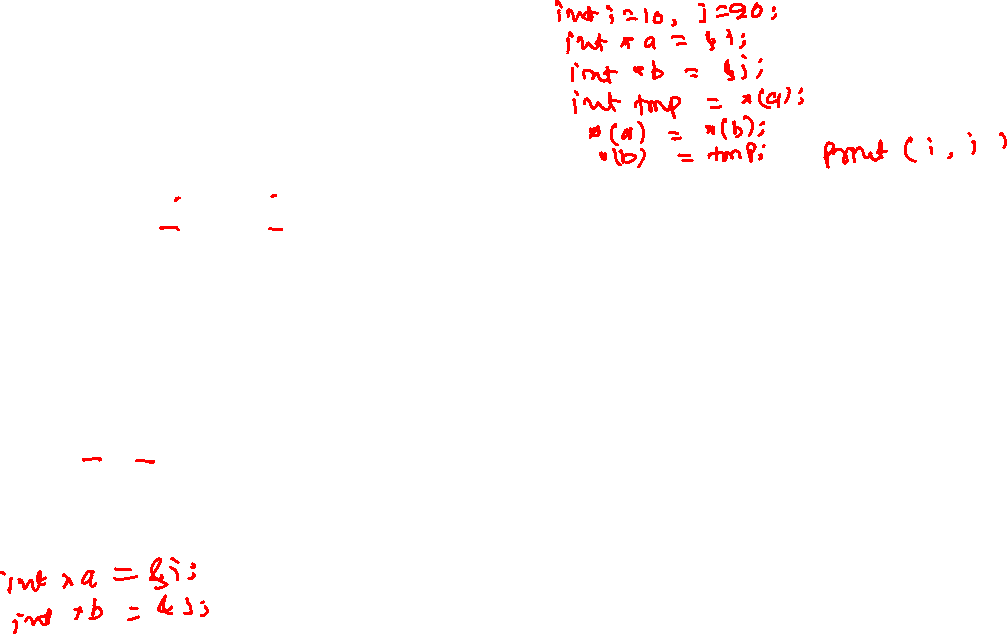 int i=10, j=20;
int *a = &i;
int *b = &j;
int tmp = *(a);
*(a) = *(b);
*(b) = tmp; print (i, j)
int *a = &i;
int *b = &j;